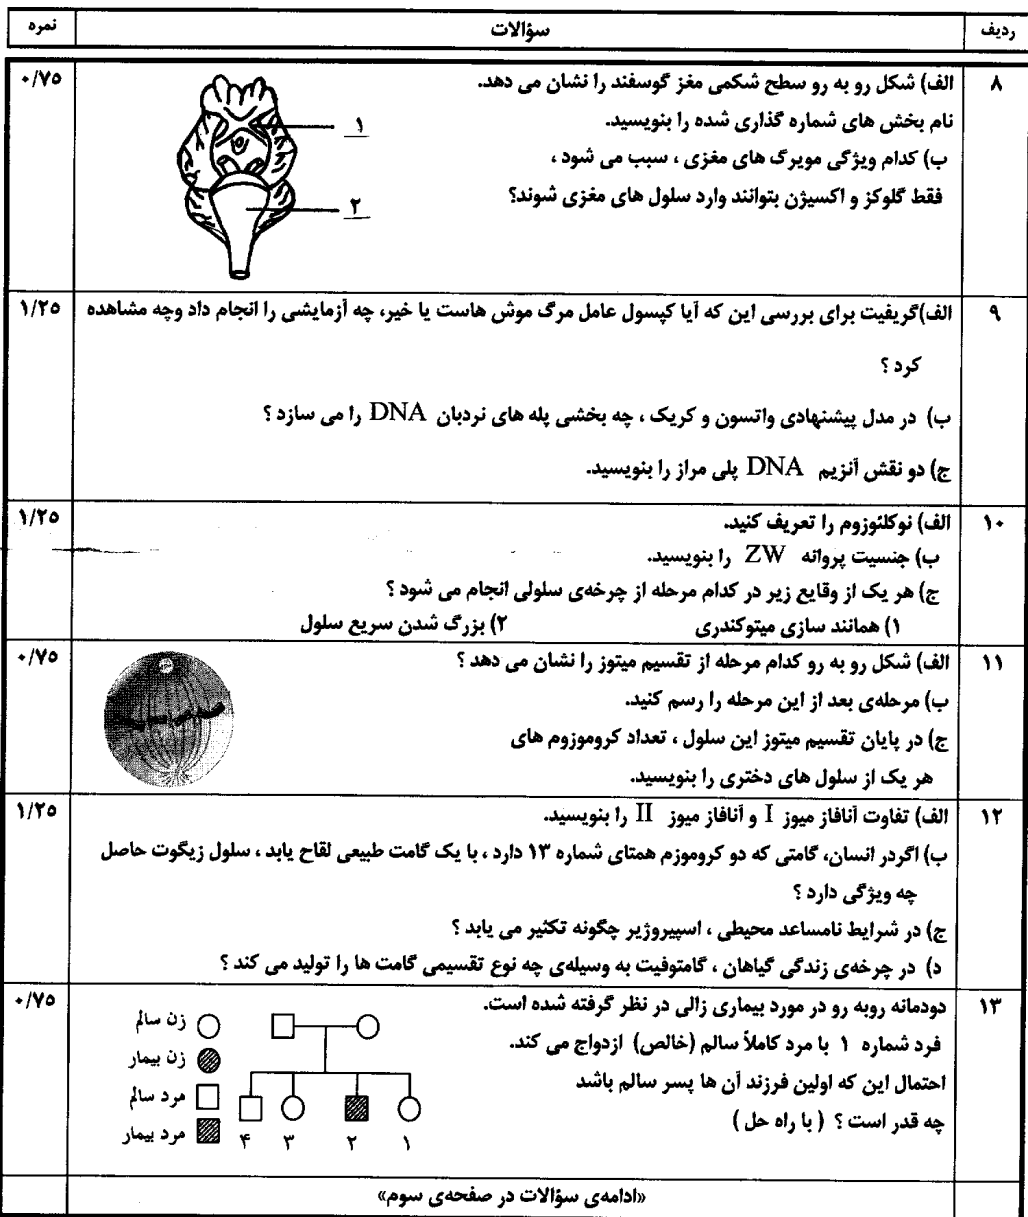 ردیف سؤالات نمره
۸ الف) شکل رو به رو سطح شکمی مغز گوسفند را نشان می دهد. ۰/۷۵
نام بخش های شماره گذاری شده را بنویسید.
۱
ب) کدام ویژگی مویرگ های مغزی ، سبب می شود ،
فقط گلوکز و اکسیژن بتوانند وارد سلول های مغزی شوند؟
۲
۹ الف)گریفیت برای بررسی این که آیا کپسول عامل مرگ موش هاست یا خیر، چه آزمایشی را انجام داد وچه مشاهده ۱/۲۵
کرد ؟
ب) در مدل پیشنهادی واتسون و کریک ، چه بخشی پله های نردبان DNA را می سازد ؟
ج) دو نقش آنزیم DNA پلی مراز را بنویسید.
۱۰ الف) نوکلئوزوم را تعریف کنید. ۱/۲۵
ب) جنسیت پروانه ZW را بنویسید.
ج) هر یک از وقایع زیر در کدام مرحله از چرخه‌ی سلولی انجام می شود ؟
۱) همانند سازی میتوکندری ۲) بزرگ شدن سریع سلول
۱۱ الف) شکل رو به رو کدام مرحله از تقسیم میتوز را نشان می دهد ؟ ۰/۷۵
ب) مرحله‌ی بعد از این مرحله را رسم کنید.
ج) در پایان تقسیم میتوز این سلول ، تعداد کروموزوم های
هر یک از سلول های دختری را بنویسید.
۱۲ الف) تفاوت آنافاز میوز I و آنافاز میوز II را بنویسید. ۱/۲۵
ب) اگردر انسان، گامتی که دو کروموزم همتای شماره ۱۳ دارد ، با یک گامت طبیعی لقاح یابد ، سلول زیگوت حاصل
چه ویژگی دارد ؟
ج) در شرایط نامساعد محیطی ، اسپیروژیر چگونه تکثیر می یابد ؟
د) در چرخه‌ی زندگی گیاهان ، گامتوفیت به وسیله‌ی چه نوع تقسیمی گامت ها را تولید می کند ؟
۱۳ دودمانه روبه رو در مورد بیماری زالی در نظر گرفته شده است. ۰/۷۵
فرد شماره ۱ با مرد کاملاً سالم (خالص) ازدواج می کند.
احتمال این که اولین فرزند آن ها پسر سالم باشد
چه قدر است ؟ ( با راه حل )
زن سالم
زن بیمار
مرد سالم
مرد بیمار
۱ ۲ ۳ ۴
«ادامه‌ی سؤالات در صفحه‌ی سوم»